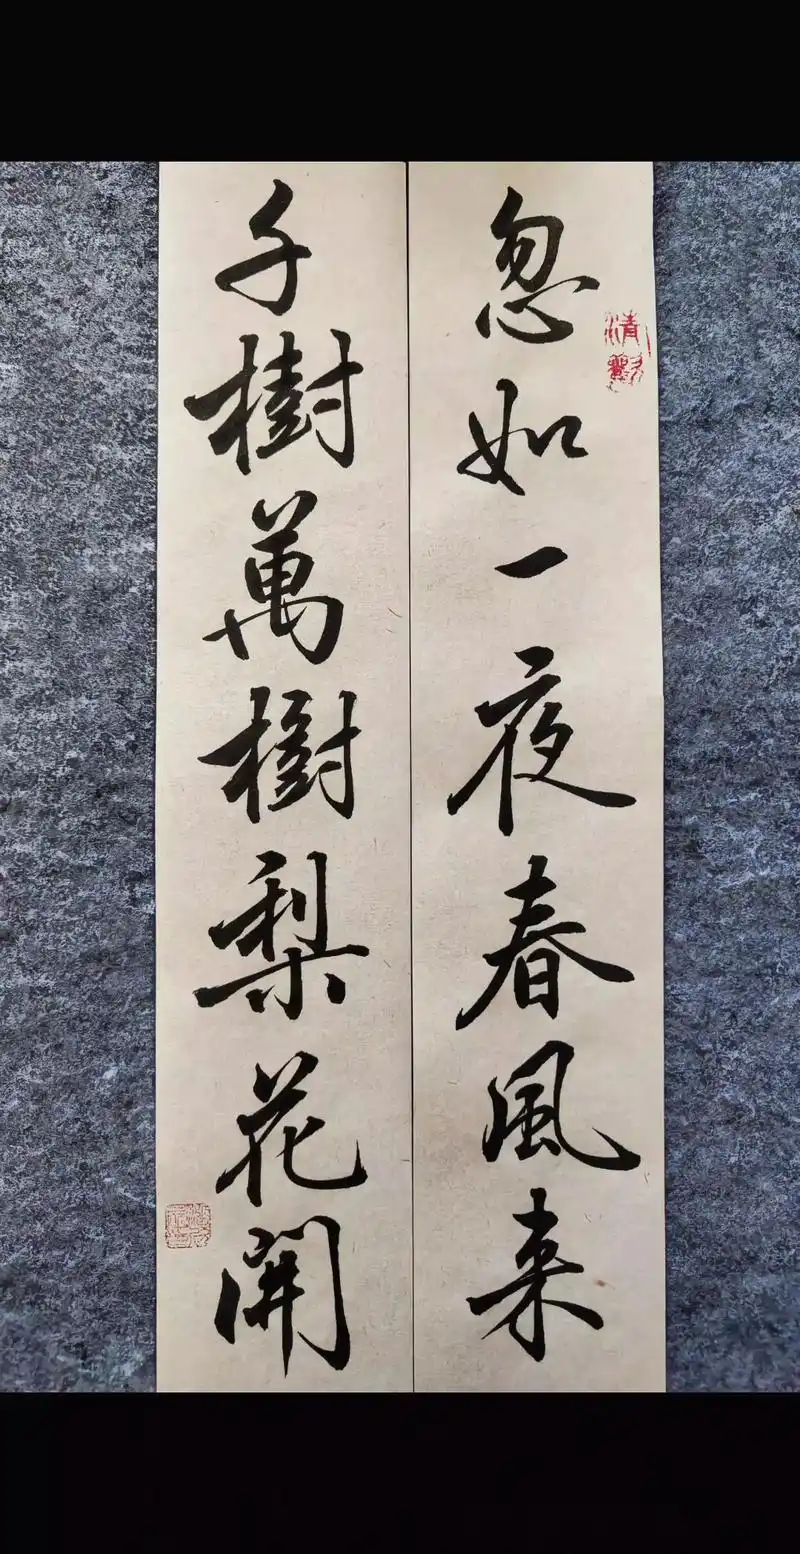 忽如一夜春風来
千樹萬樹梨花開